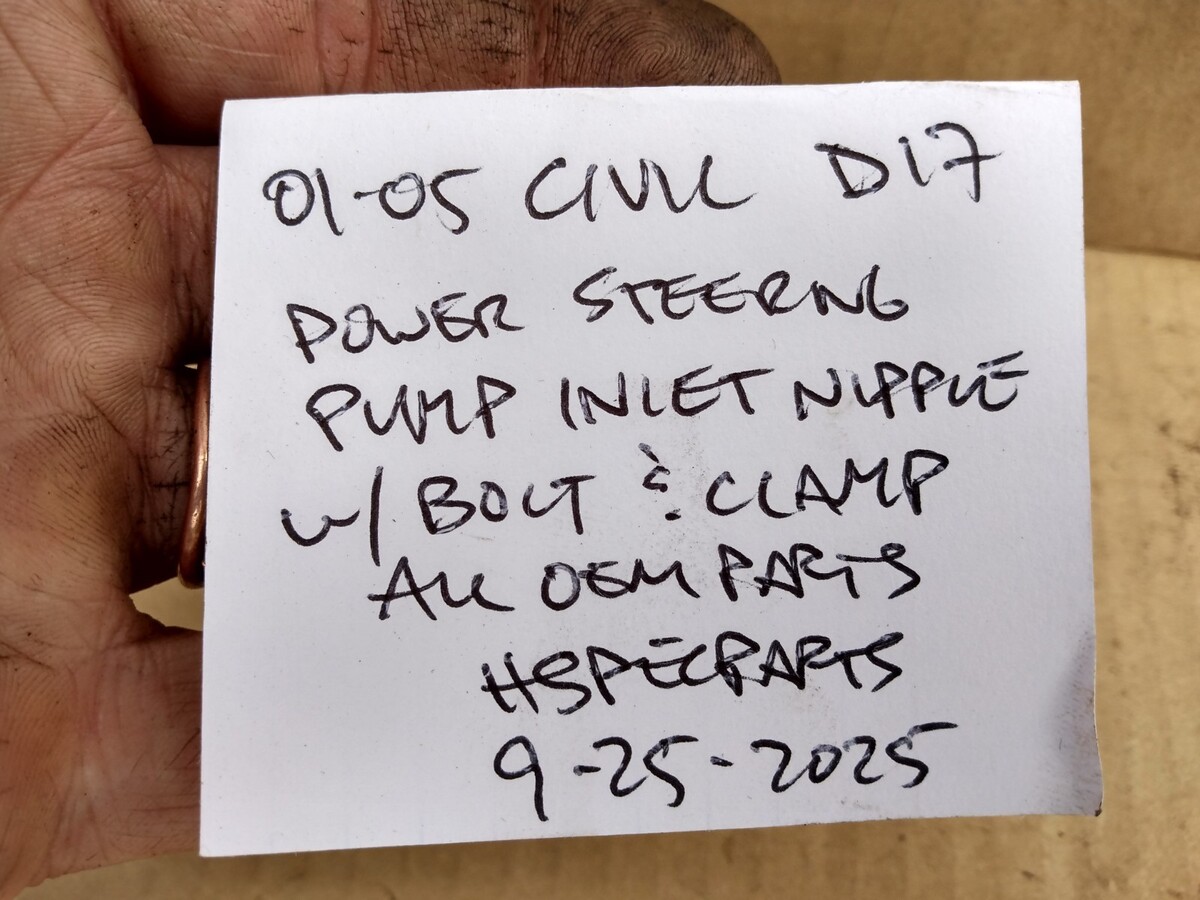 01-05 CIVIC D17
POWER STEERING
PUMP INLET NIPPLE
W/ BOLT & CLAMP
ALL OEM PARTS
HSPECPARTS
9-25-2025